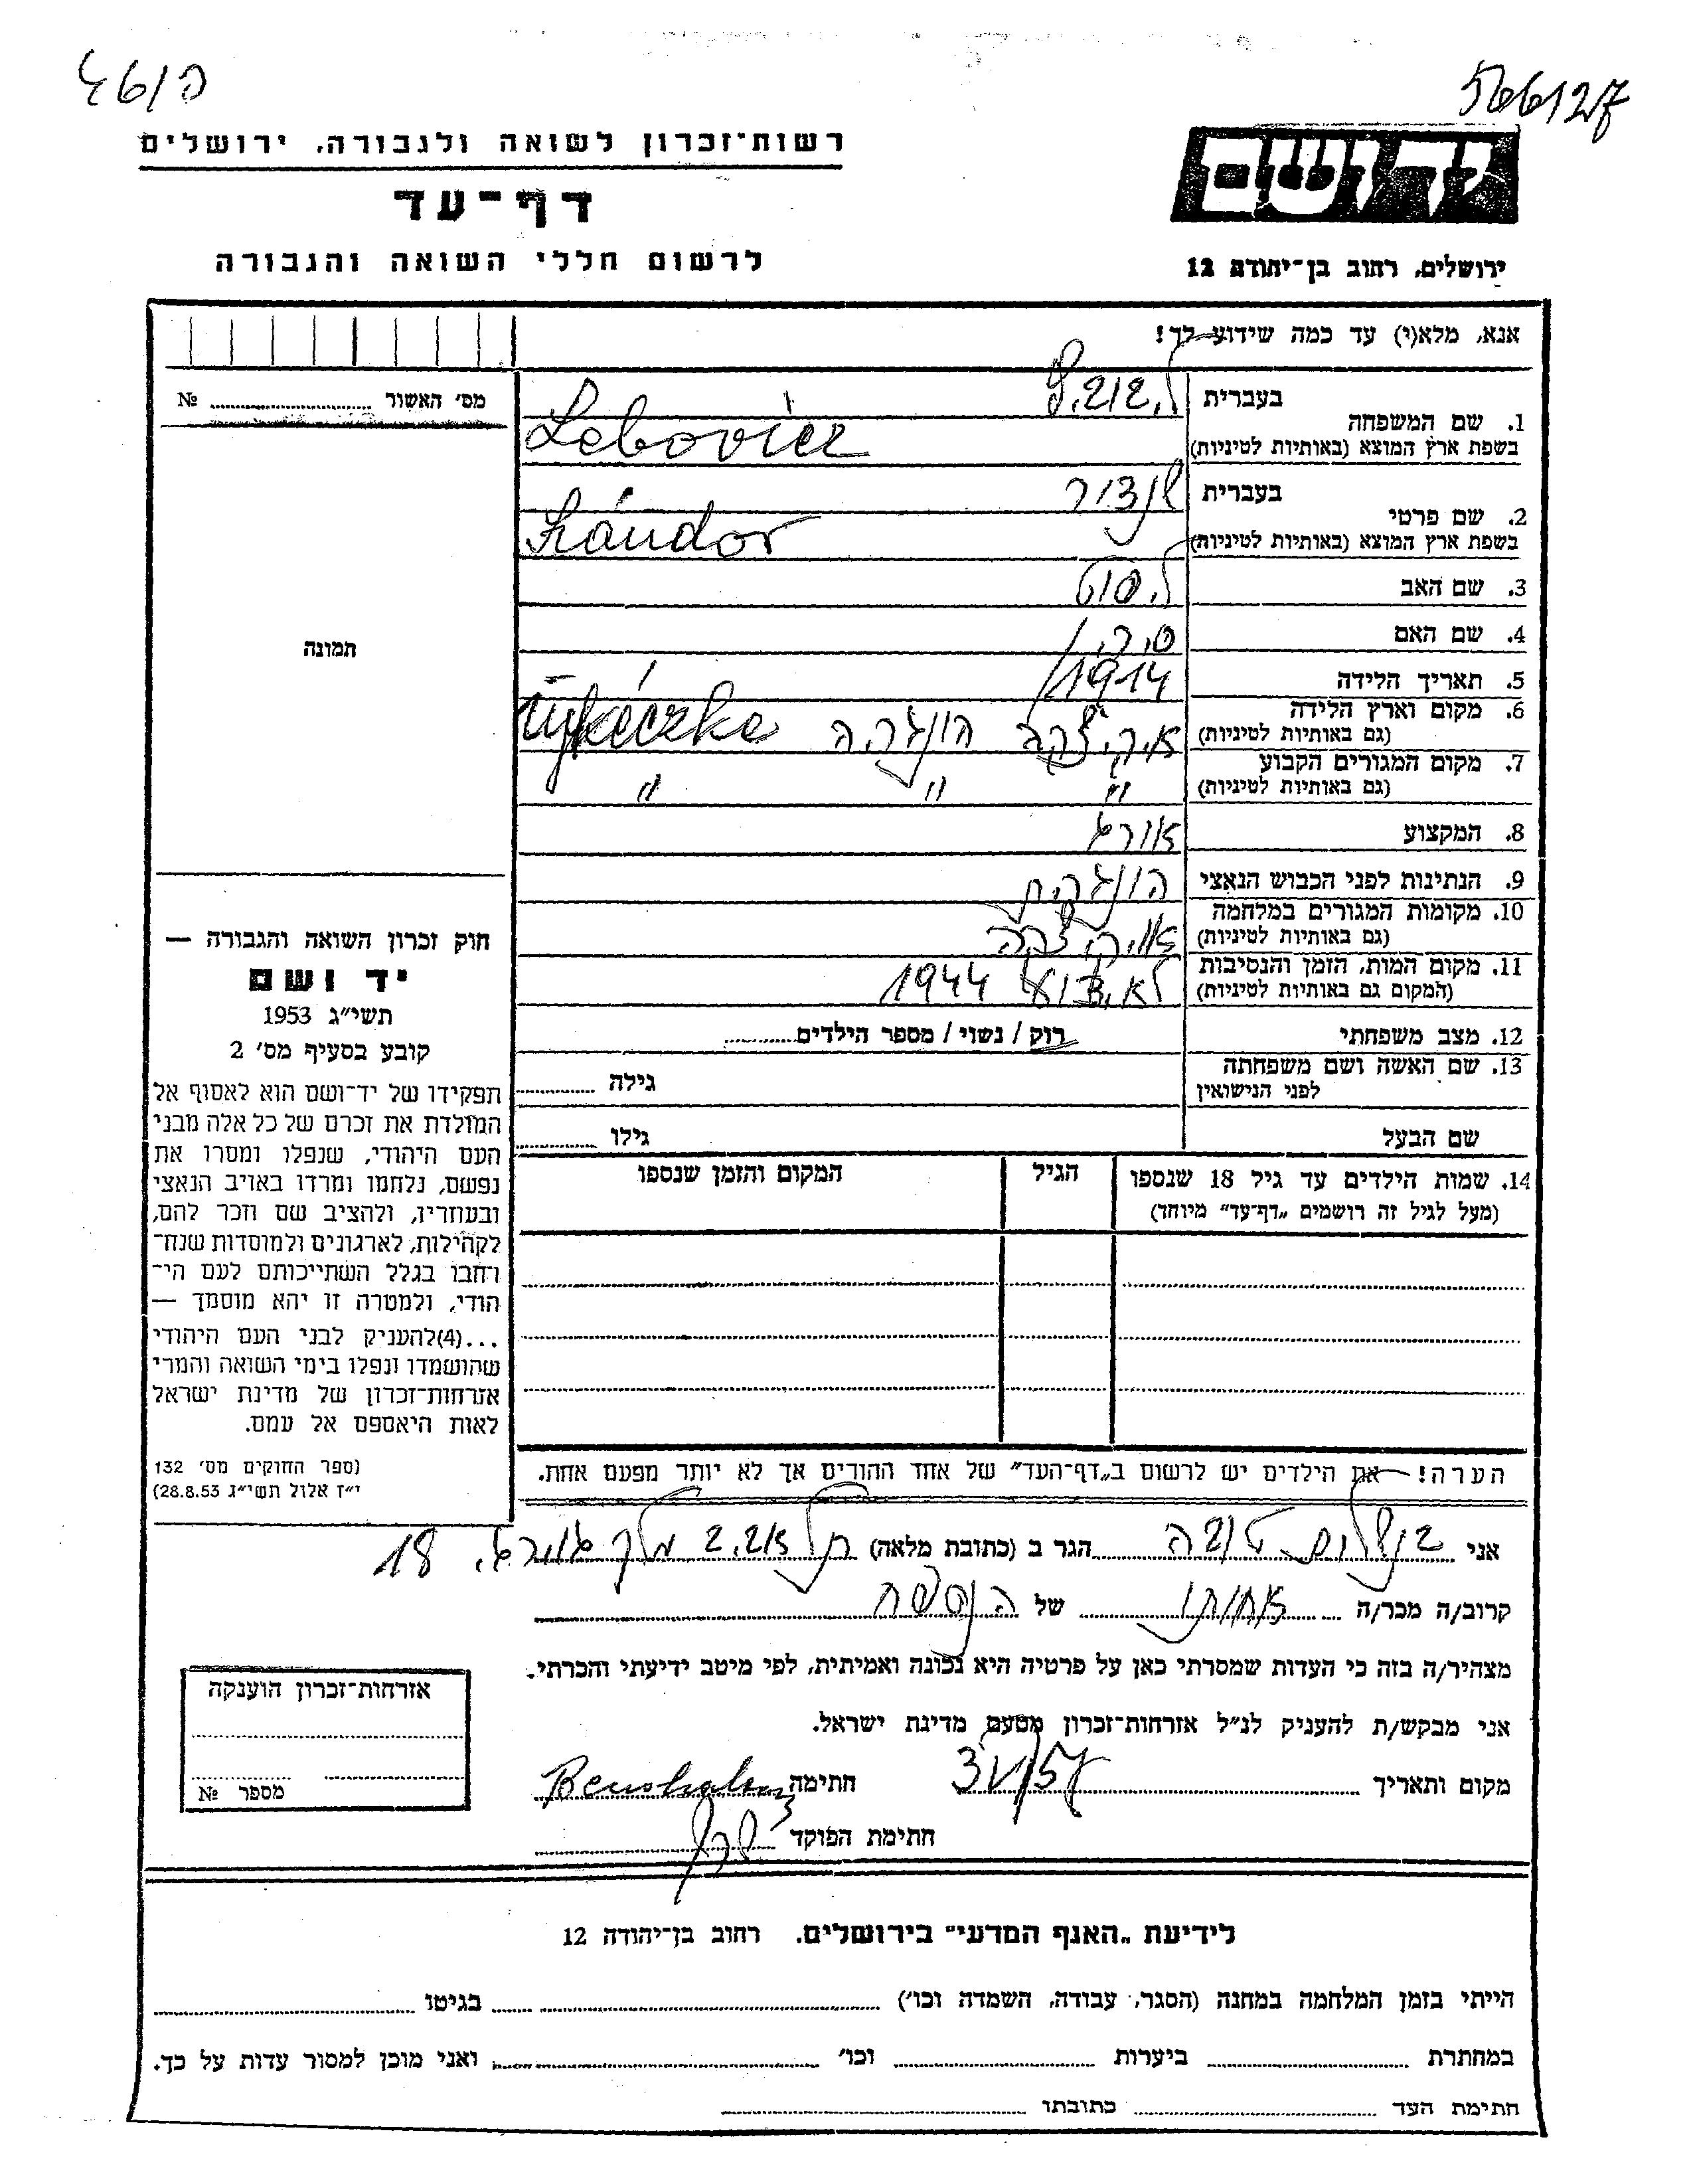 46/ם
566127
רשות־זכרון לשואה ולגבורה, ירושלים
דף־עד
לרשום חללי השואה והגבורה
ידושם
ירושלים, רחוב בן־יהודה 12
אנא, מלא(י) עד כמה שידוע לך!
מס׳ האשור ........ №
1. שם המשפחה
בעברית ליבוביץ
בשפת ארץ המוצא (באותיות לטיניות) Lebovicz
2. שם פרטי
בעברית שנדור
בשפת ארץ המוצא (באותיות לטיניות) Sándor
3. שם האב
4. שם האם
5. תאריך הלידה 1914
6. מקום וארץ הלידה (גם באותיות לטיניות) הונגריה
7. מקום המגורים הקבוע (גם באותיות לטיניות) " " "
8. המקצוע
9. הנתינות לפני הכבוש הנאצי הונגרית
10. מקומות המגורים במלחמה (גם באותיות לטיניות)
11. מקום המות, הזמן והנסיבות (המקום גם באותיות לטיניות) לא ידוע 1944
12. מצב משפחתי רוק / נשוי / מספר הילדים........
13. שם האשה ושם משפחתה לפני הנישואין גילה ........
שם הבעל גילו ........
14. שמות הילדים עד גיל 18 שנספו
(מעל לגיל זה רושמים „דף־עד״ מיוחד)
הגיל
המקום והזמן שנספו
תמונה
חוק זכרון השואה והגבורה —
יד ושם
תשי״ג 1953
קובע בסעיף מס׳ 2
תפקידו של יד־ושם הוא לאסוף אל
המולדת את זכרם של כל אלה מבני
העם היהודי, שנפלו ומסרו את
נפשם, נלחמו ומרדו באויב הנאצי
ובעוזריו, ולהציב שם וזכר להם,
לקהילות, לארגונים ולמוסדות שנח־
רבו בגלל השתייכותם לעם הי־
הודי, ולמטרה זו יהא מוסמך —
...(4)להעניק לבני העם היהודי
שהושמדו ונפלו בימי השואה והמרי
אזרחות־זכרון של מדינת ישראל
לאות היאספם אל עמם.
(ספר החוקים מס׳ 132
י״ז אלול תשי״ג 28.8.53)
הערה! — את הילדים יש לרשום ב„דף־העד״ של אחד ההורים אך לא יותר מפעם אחת.
אני בן שלום טובה הגר ב (כתובת מלאה) תל אביב מלך 18
קרוב/ה מכר/ה אחותו של הנספה
מצהיר/ה בזה כי העדות שמסרתי כאן על פרטיה היא נכונה ואמיתית, לפי מיטב ידיעתי והכרתי.
אני מבקש/ת להעניק לנ״ל אזרחות־זכרון מטעם מדינת ישראל.
מקום ותאריך 3/V/57 חתימה Bensholom
חתימת הפוקד
אזרחות־זכרון הוענקה
מספר №
לידיעת „האגף המדעי״ בירושלים. רחוב בן־יהודה 12
הייתי בזמן המלחמה במחנה (הסגר, עבודה, השמדה וכו׳) ........ בגיטו ........
במחתרת ........ ביערות ........ וכו׳ ........ ואני מוכן למסור עדות על כך.
חתימת העד ........ כתובתו ........